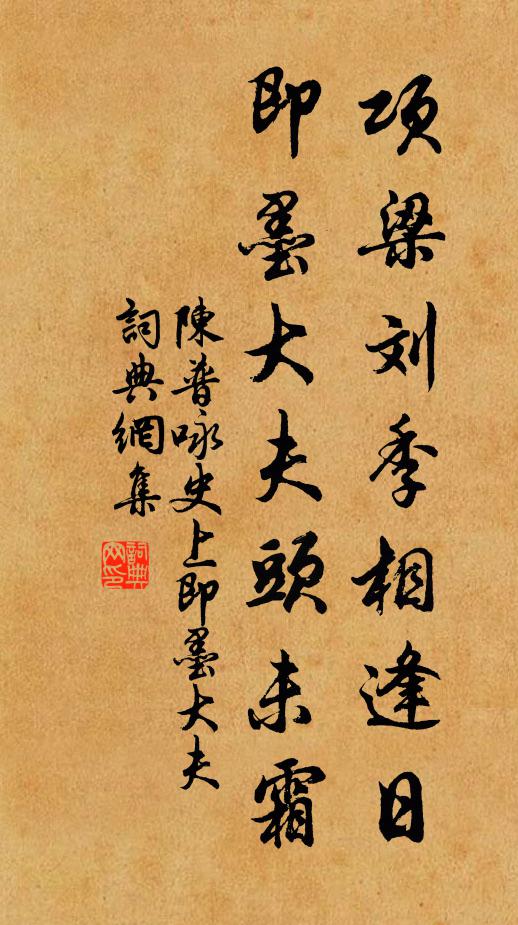 项梁刘季相逢日
即墨大夫頭未霜
陳普咏史上即墨大夫
詞典網集
詞典网印